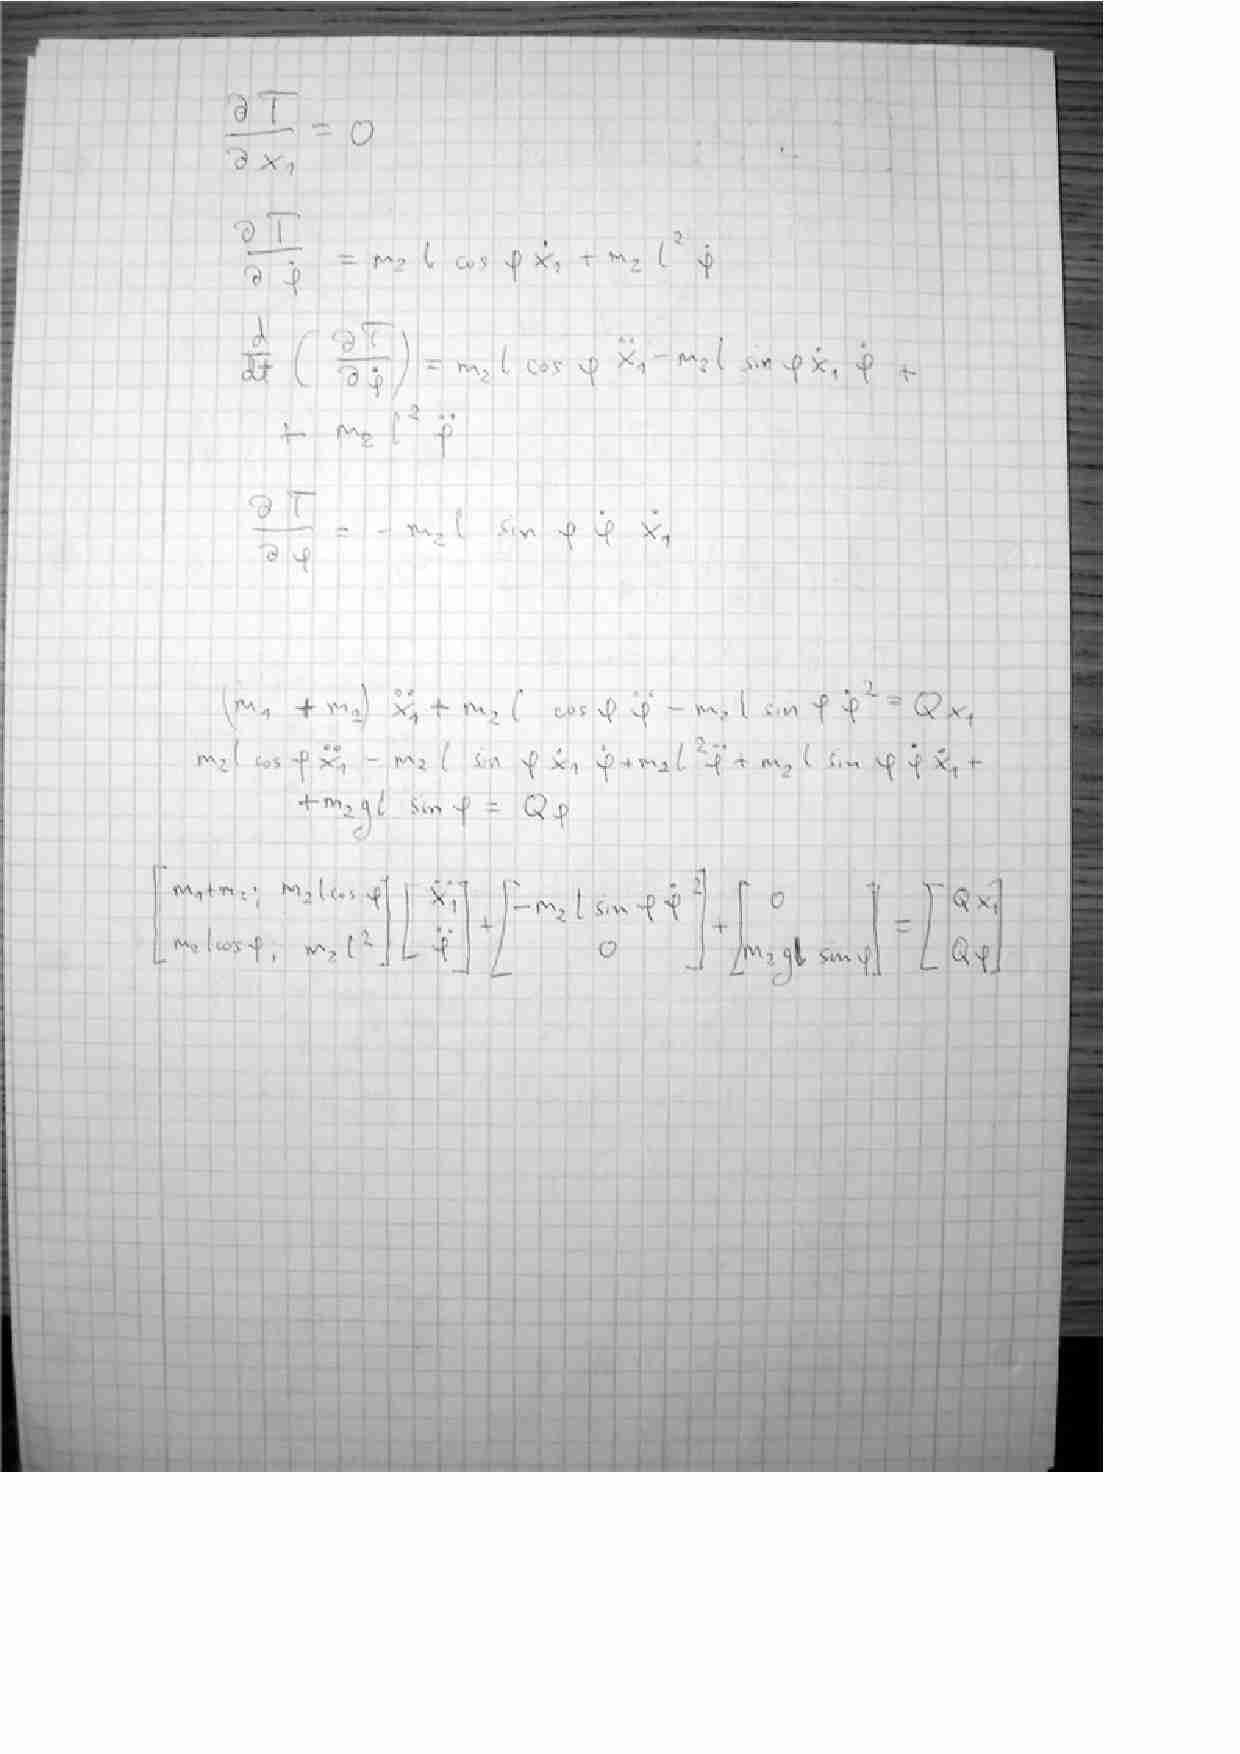 ∂T/∂x₁ = 0
∂T/∂φ̇ = m₂ l cos φ ẋ₁ + m₂ l² φ̇
d/dt (∂T/∂φ̇) = m₂ l cos φ ẍ₁ - m₂ l sin φ ẋ₁ φ̇ +
+ m₂ l² φ̈
∂T/∂φ = - m₂ l sin φ φ̇ ẋ₁
(m₁ + m₂) ẍ₁ + m₂ l cos φ φ̈ - m₂ l sin φ φ̇² = Q x₁
m₂ l cos φ ẍ₁ - m₂ l sin φ ẋ₁ φ̇ + m₂ l² φ̈ + m₂ l sin φ φ̇ ẋ₁ +
+ m₂ g l sin φ = Q φ
[m₁+m₂; m₂ l cos φ] [ẍ₁] + [-m₂ l sin φ φ̇²] + [0] = [Q x₁]
[m₂ l cos φ; m₂ l²] [φ̈] [0] [m₂ g l sin φ] [Q φ]